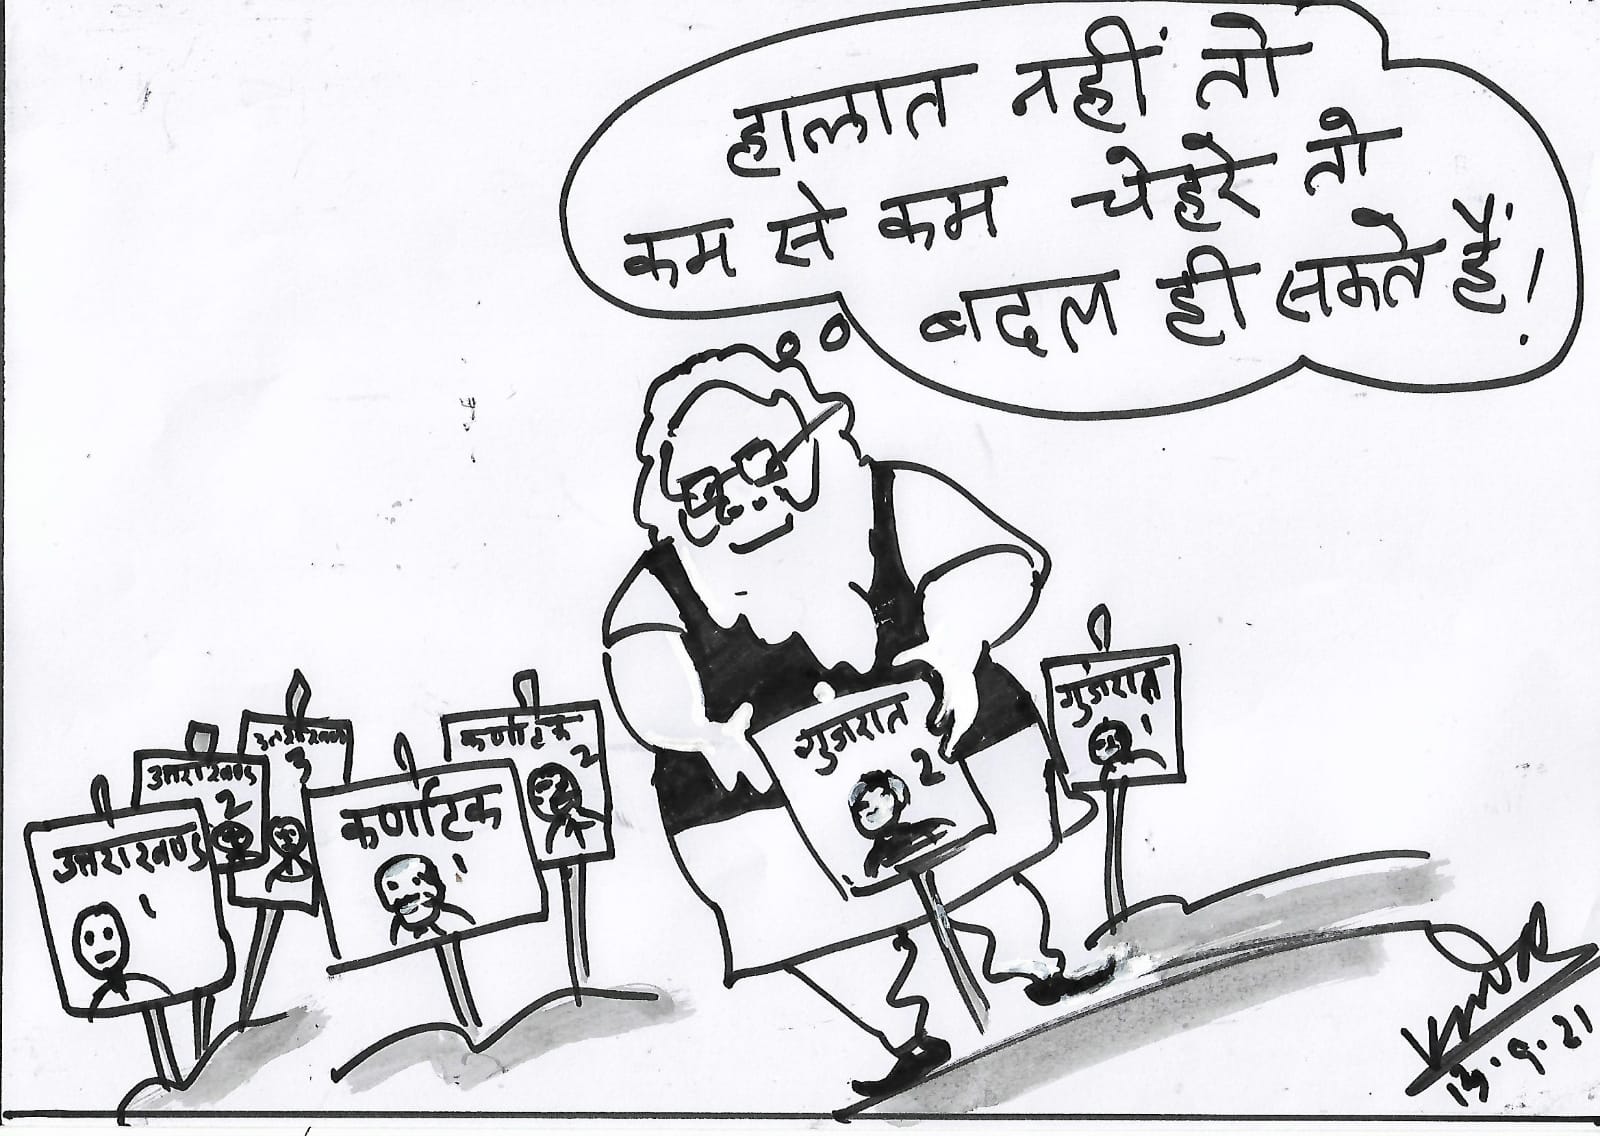 हालात नहीं तो
कम से कम चेहरे तो
बदल ही सकते हैं!
गुजरात
1
गुजरात
2
कर्णाटक
2
कर्णाटक
1
उत्तराखण्ड
3
उत्तराखण्ड
2
उत्तराखण्ड
1
13.9.21